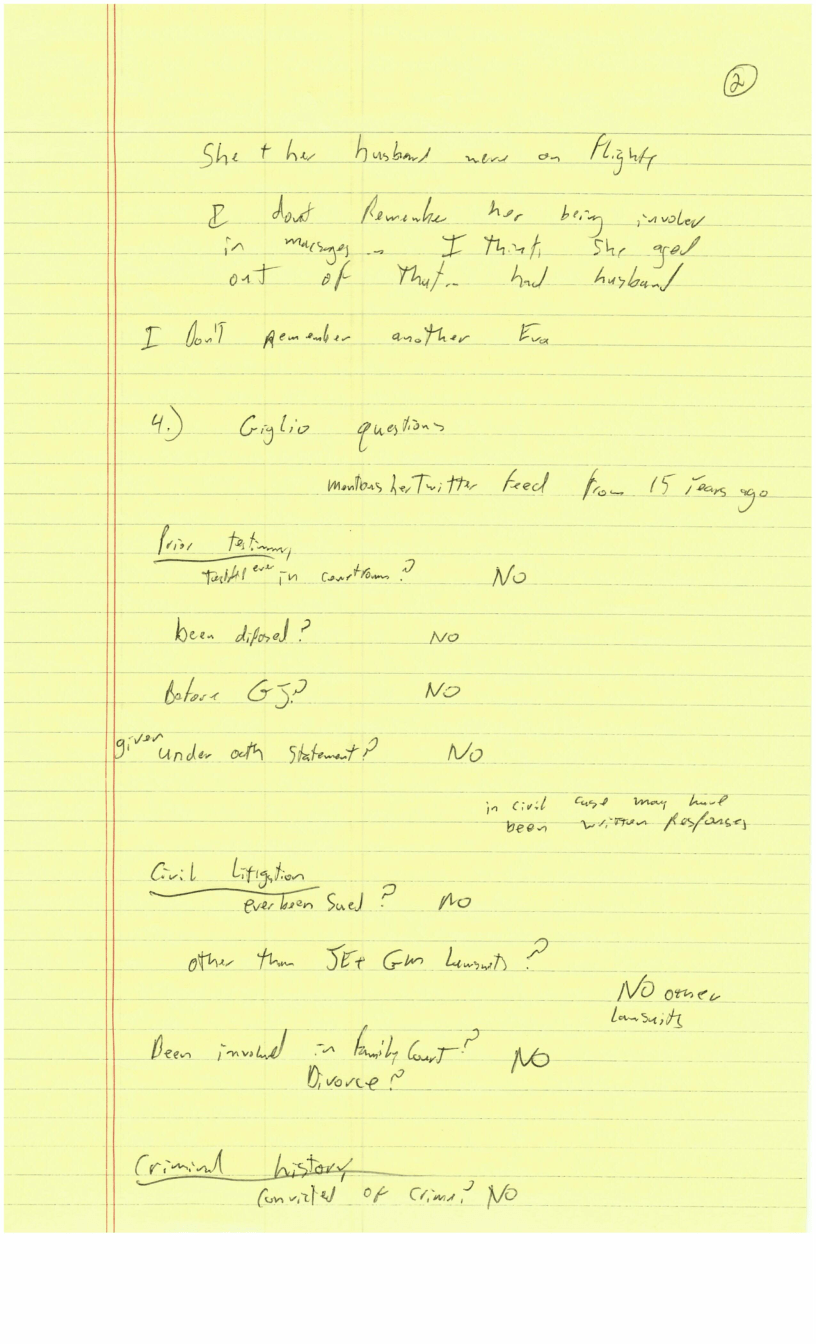 2
She + her husband were on flights
I dont Remember her being involved
in massages .. I think she aged
out of that.. had husband
I Don't Remember another Eva
4.) Giglio questions
mentions her Twitter feed from 15 Years ago
Prior testimony
ever in courtroom? NO
been diposed? NO
Before GJ? NO
given under oath statement? NO
in civil case may have
been written Responses
Civil Litigation
ever been sued? NO
other than JE + GM Lawsuits?
NO other
lawsuits
Been involved in family Court? NO
Divorce?
Criminal history
Convicted of crime? NO